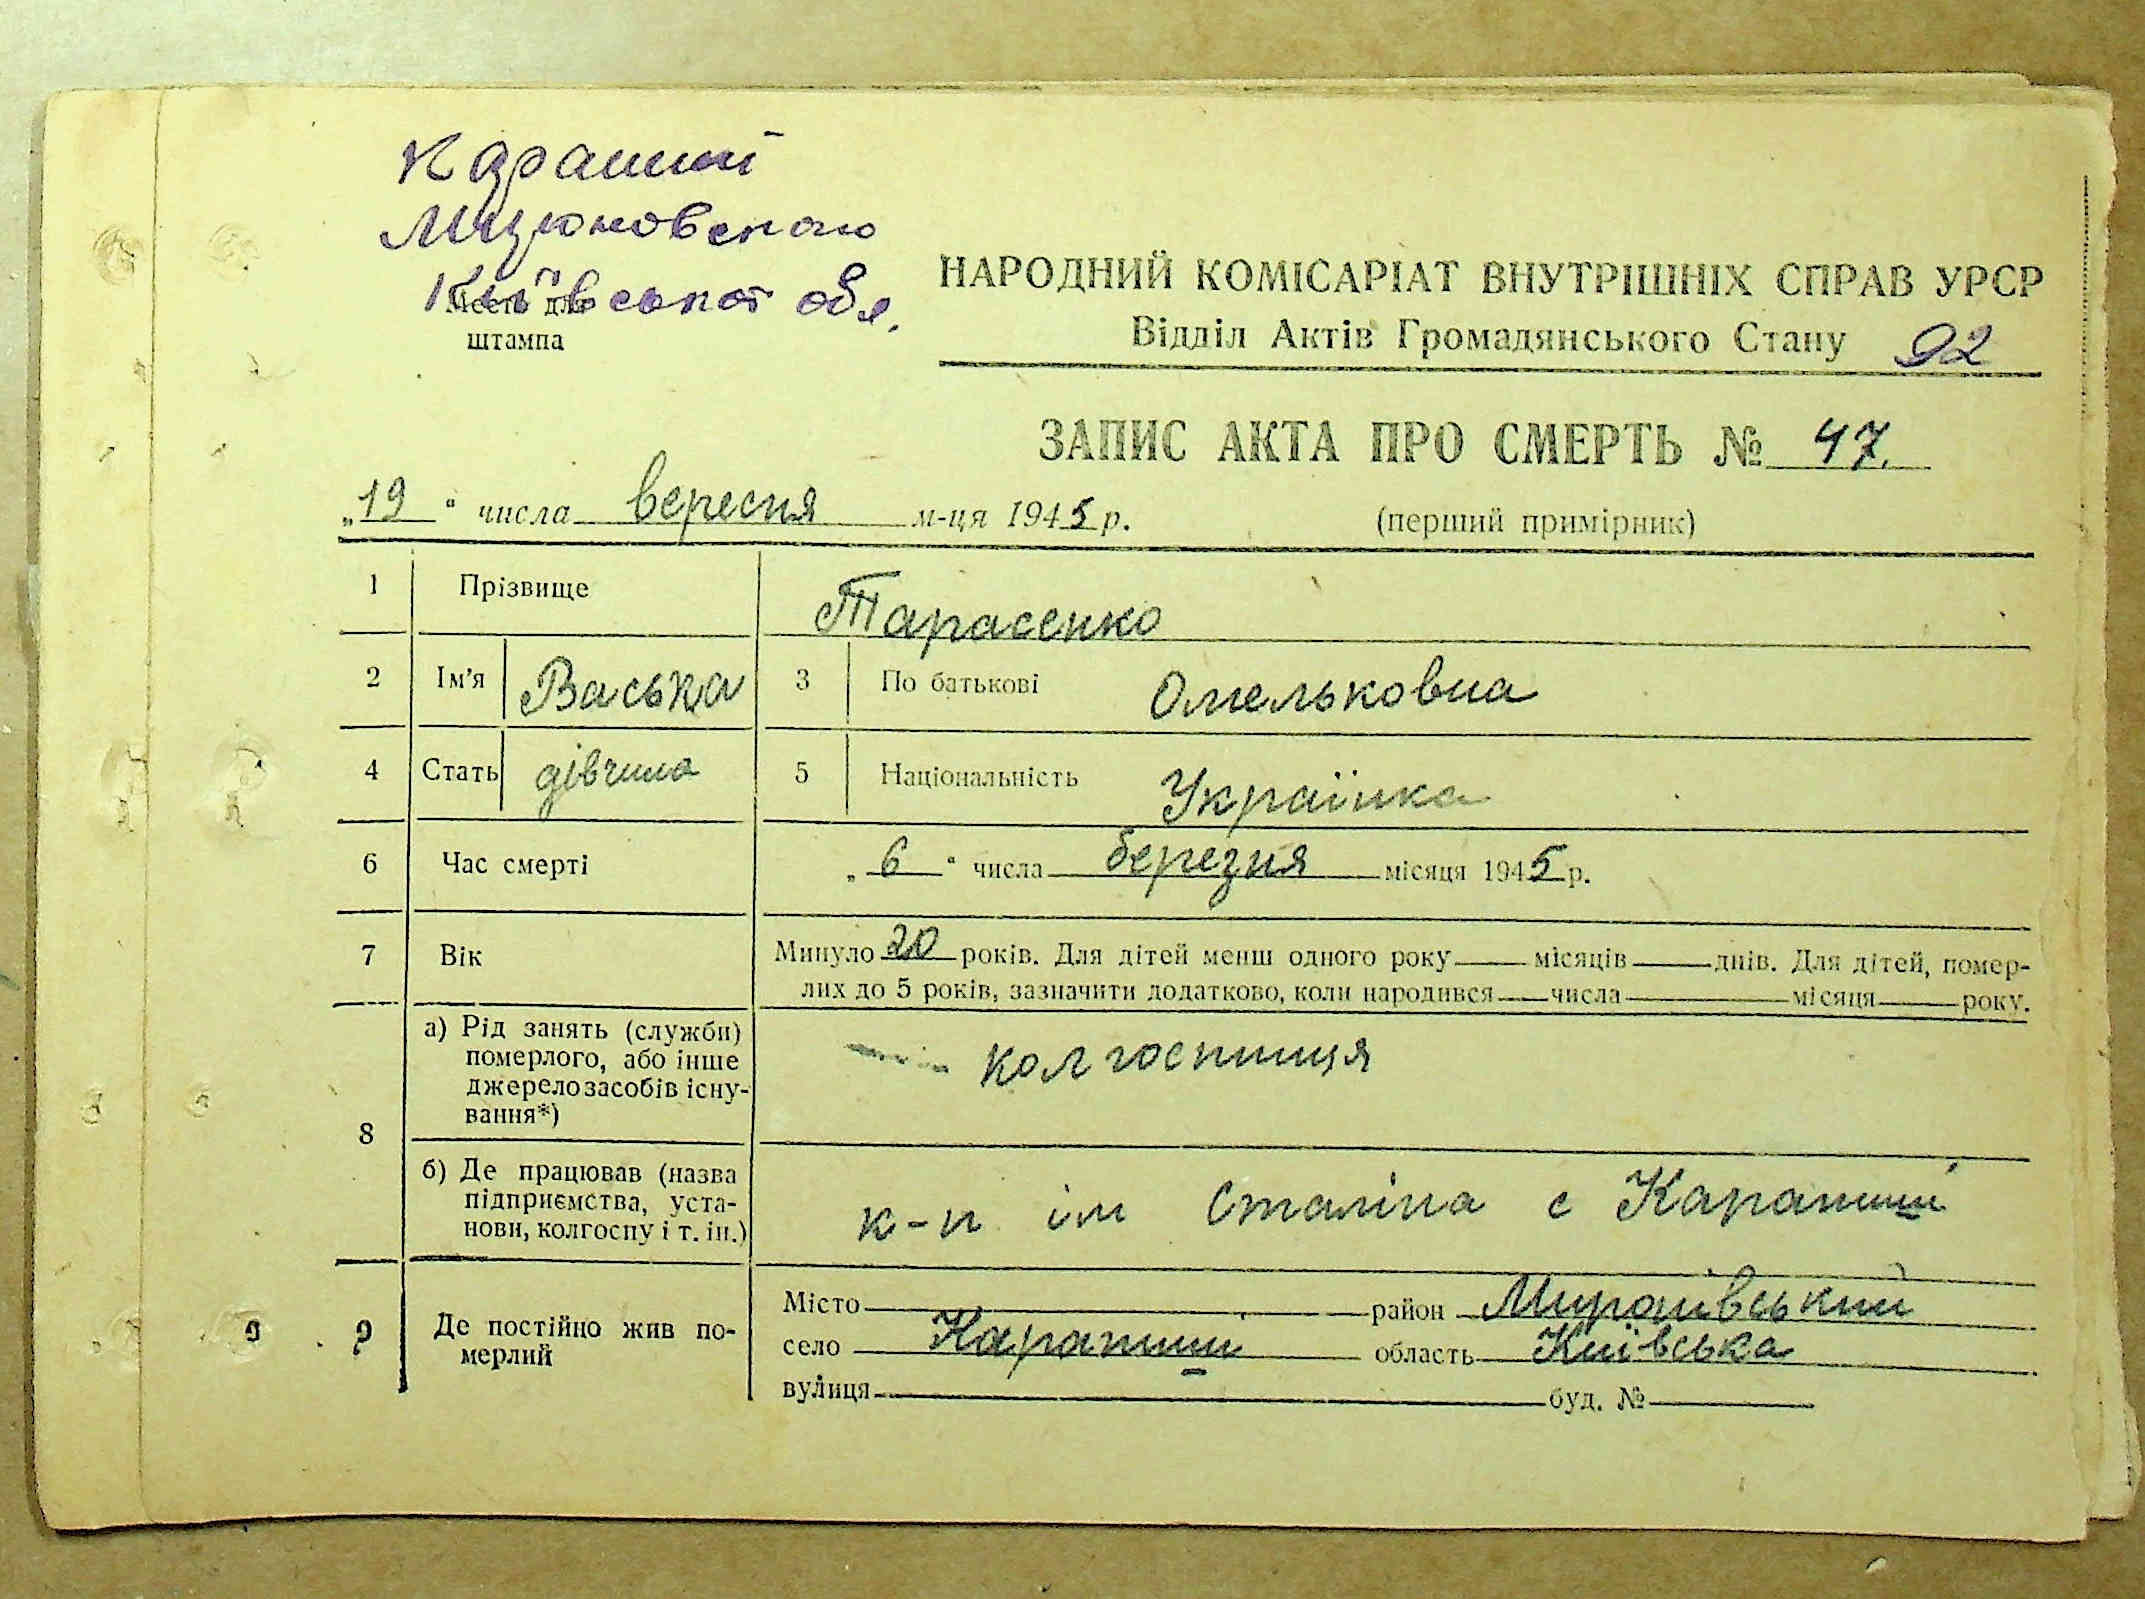 Карапиші
Мироновского
Київської обл.
Місце для
штампа
НАРОДНИЙ КОМІСАРІАТ ВНУТРІШНІХ СПРАВ УРСР
Відділ Актів Громадянського Стану 92
ЗАПИС АКТА ПРО СМЕРТЬ № 47.
„19“ числа вересня м-ця 1945 р. (перший примірник)
1 Прізвище Тарасенко
2 Ім'я Васька 3 По батькові Омельковна
4 Стать дівчина 5 Національність Українка
6 Час смерті „6“ числа березня місяця 1945 р.
7 Вік Минуло 20 років. Для дітей менш одного року місяців днів. Для дітей, помер-
лих до 5 років, зазначити додатково, коли народився числа місяця року.
8 а) Рід занять (служби) померлого, або інше джерело засобів існу-вання*) колгоспниця
б) Де працював (назва підприємства, уста-нови, колгоспу і т. ін.) к-п ім Сталіна с Карапиші
9 Де постійно жив по-мерлий
Місто район Миронівський
село Карапиші область Київська
вулиця буд. №